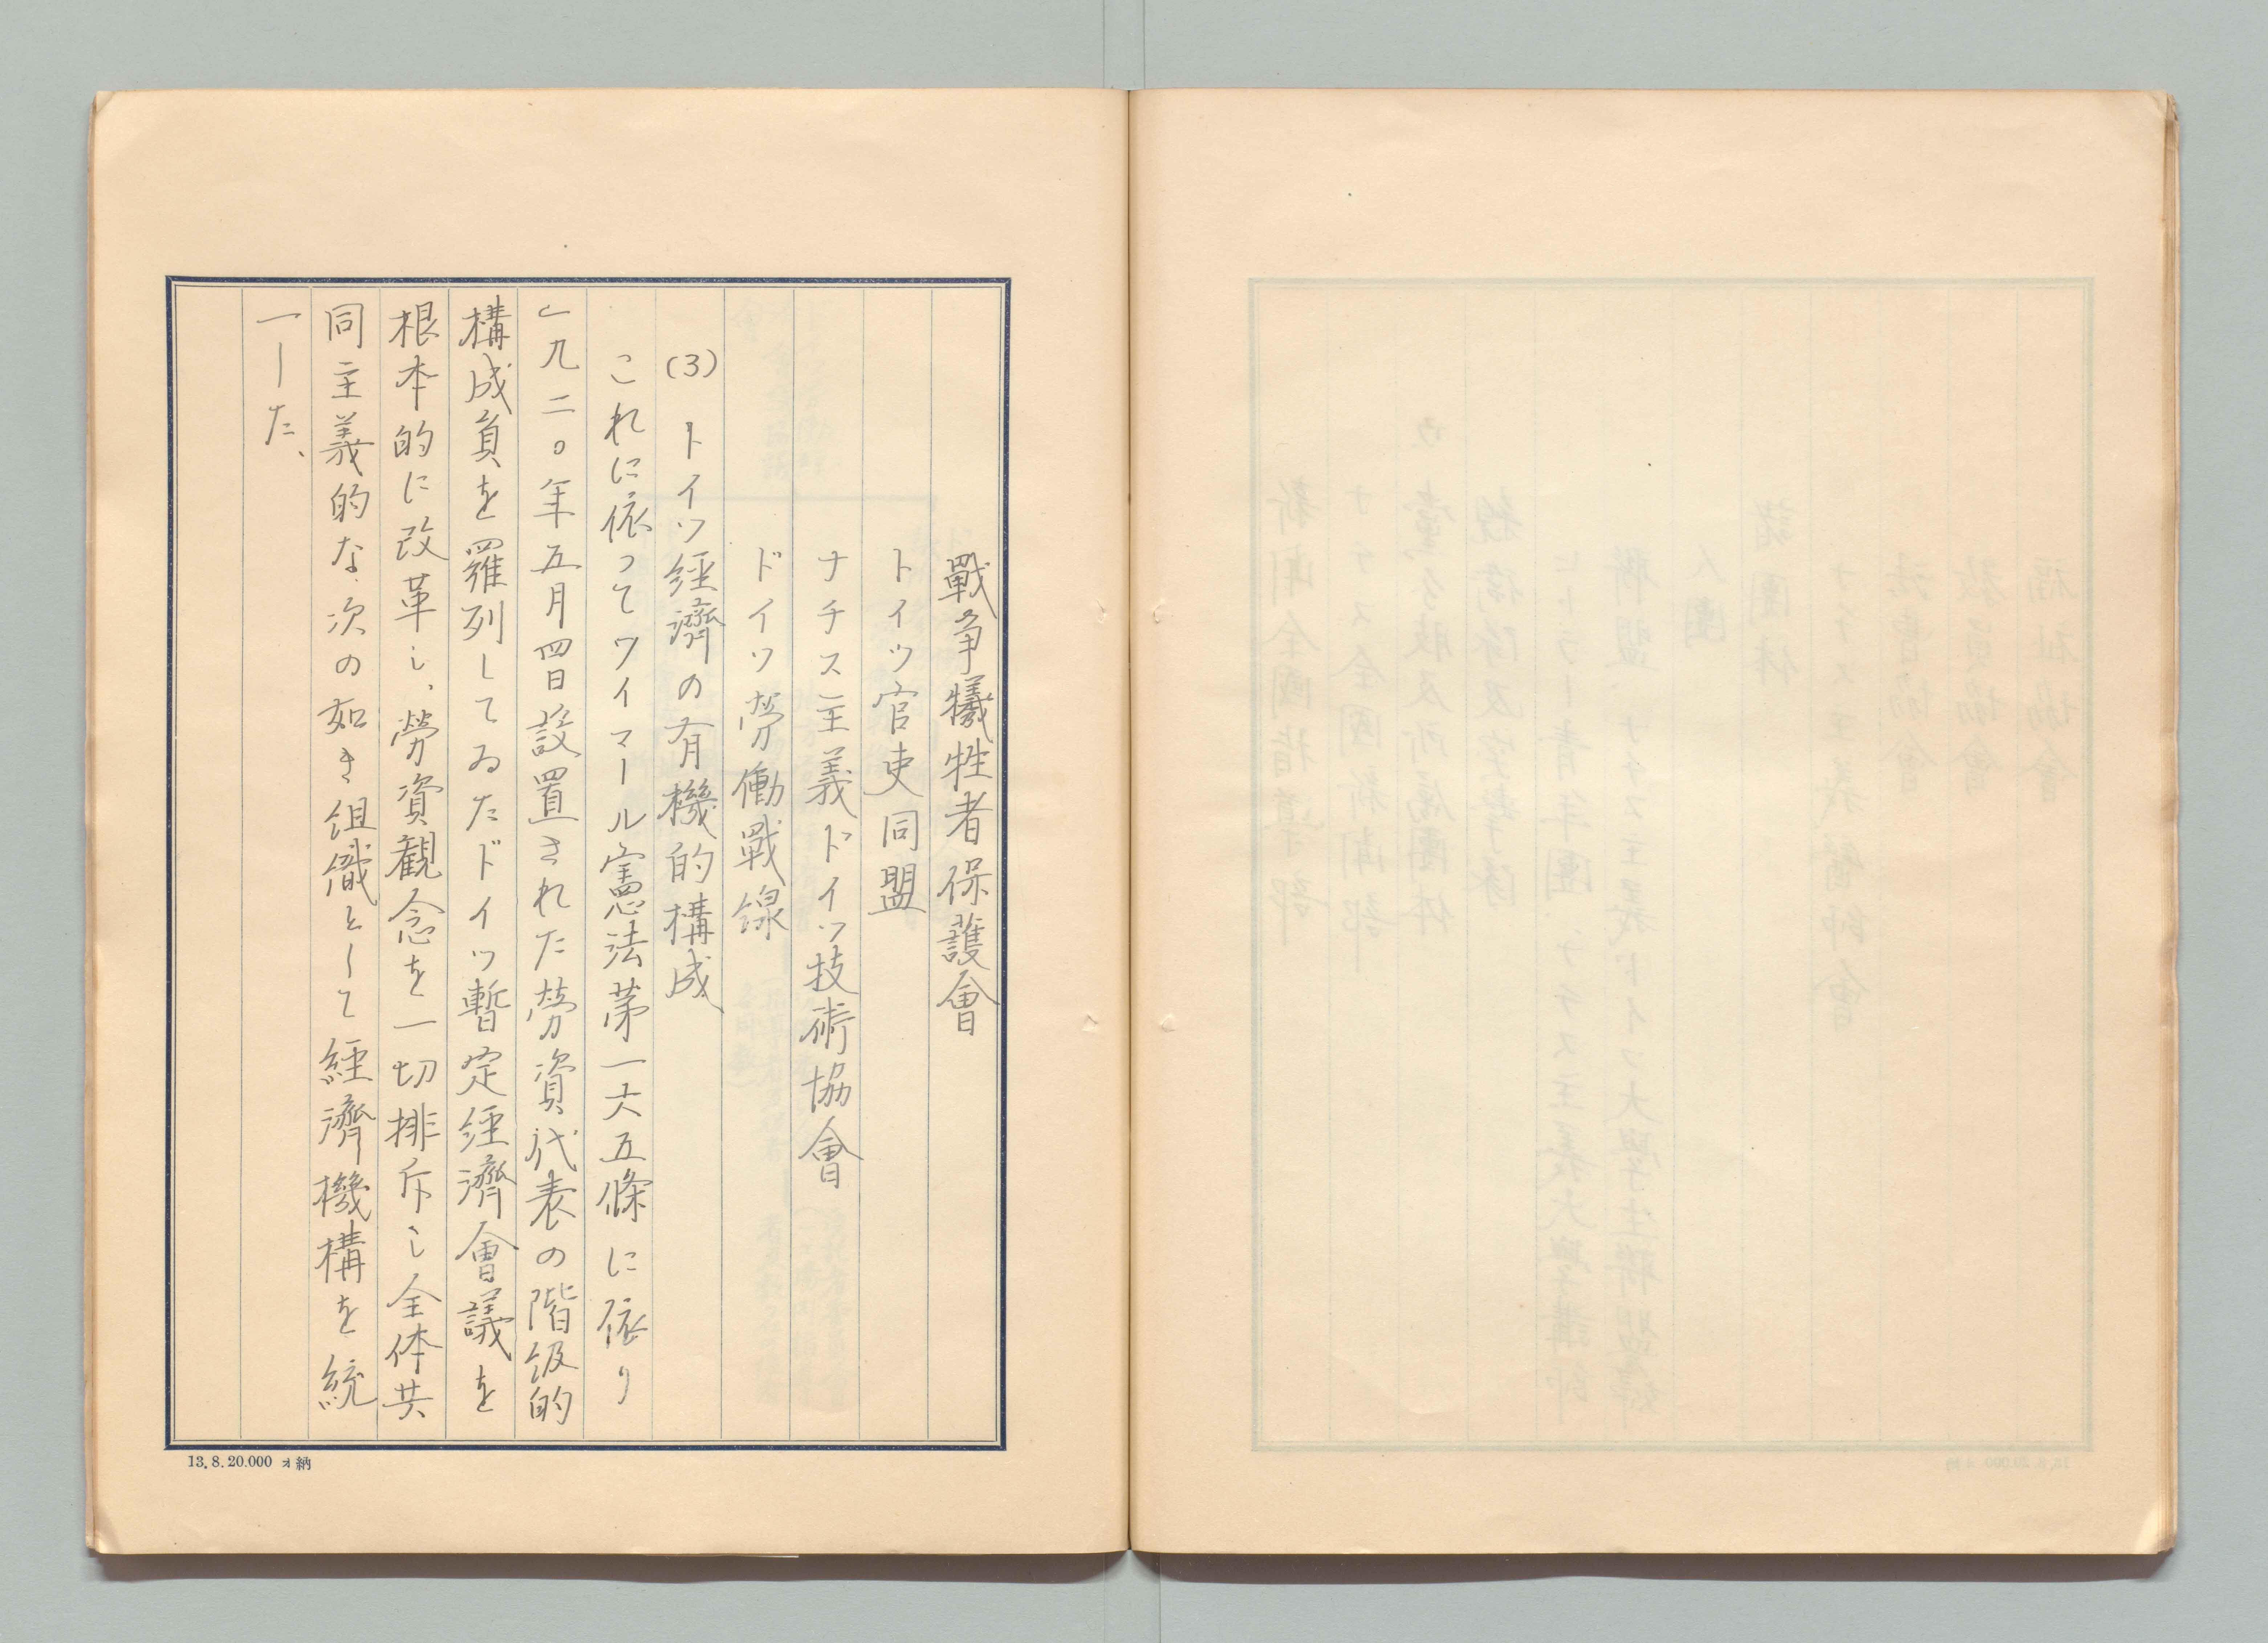 戰爭犧牲者保護會
トイツ官吏同盟
ナチス主義ドイツ技術協會
ドイツ勞働戰線
(3) トイツ経濟の有機的構成
これに依つてワイマール憲法第一六五條に依り
一九二〇年五月四日設置された勞資代表の階級的
構成員を羅列してゐたドイツ暫定経濟會議を
根本的に改革し、勞資観念を一切排斥し全体共
同主義的な次の如き組織として経濟機構を統
一した、
13.8.20.000 ォ納